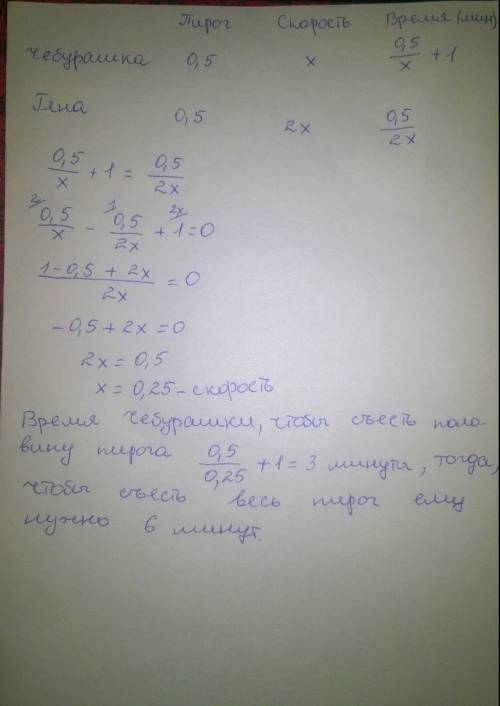 Пирог Скорость Время (мин)
Чебурашка 0,5 x 0,5/x + 1
Гена 0,5 2x 0,5/2x
0,5/x + 1 = 0,5/2x
2/ 0,5/x - 1/ 0,5/2x + 2x/ 1 = 0
1 - 0,5 + 2x / 2x = 0
- 0,5 + 2x = 0
2x = 0,5
x = 0,25 - скорость
Время Чебурашки, чтобы съесть поло-
вину пирога 0,5/0,25 + 1 = 3 минуты, тогда,
чтобы съесть весь пирог ему
нужно 6 минут.